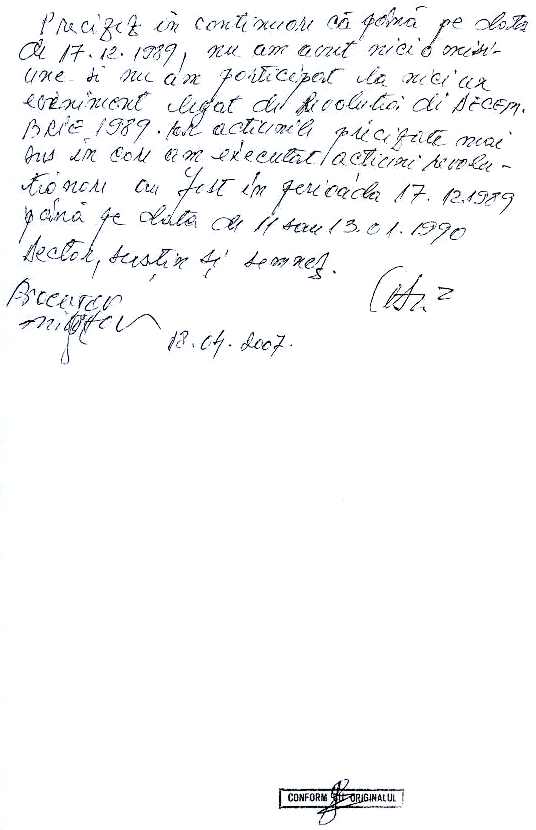 Precizez în continuare că până pe data
de 17.12.1989, nu am avut nici o misi-
une si nu am participat la nici un
eveniment legat de Revolutia di DECEM-
BRIE 1989. Iar actiunile precizate mai
sus in care am executat actiuni revolu-
tionare au fost în perioada 17.12.1989
până pe data de 11 sau 13.01.1990
Declar, susțin și semnez.
Procuror
18.04.2007.
CONFORM CU ORIGINALUL